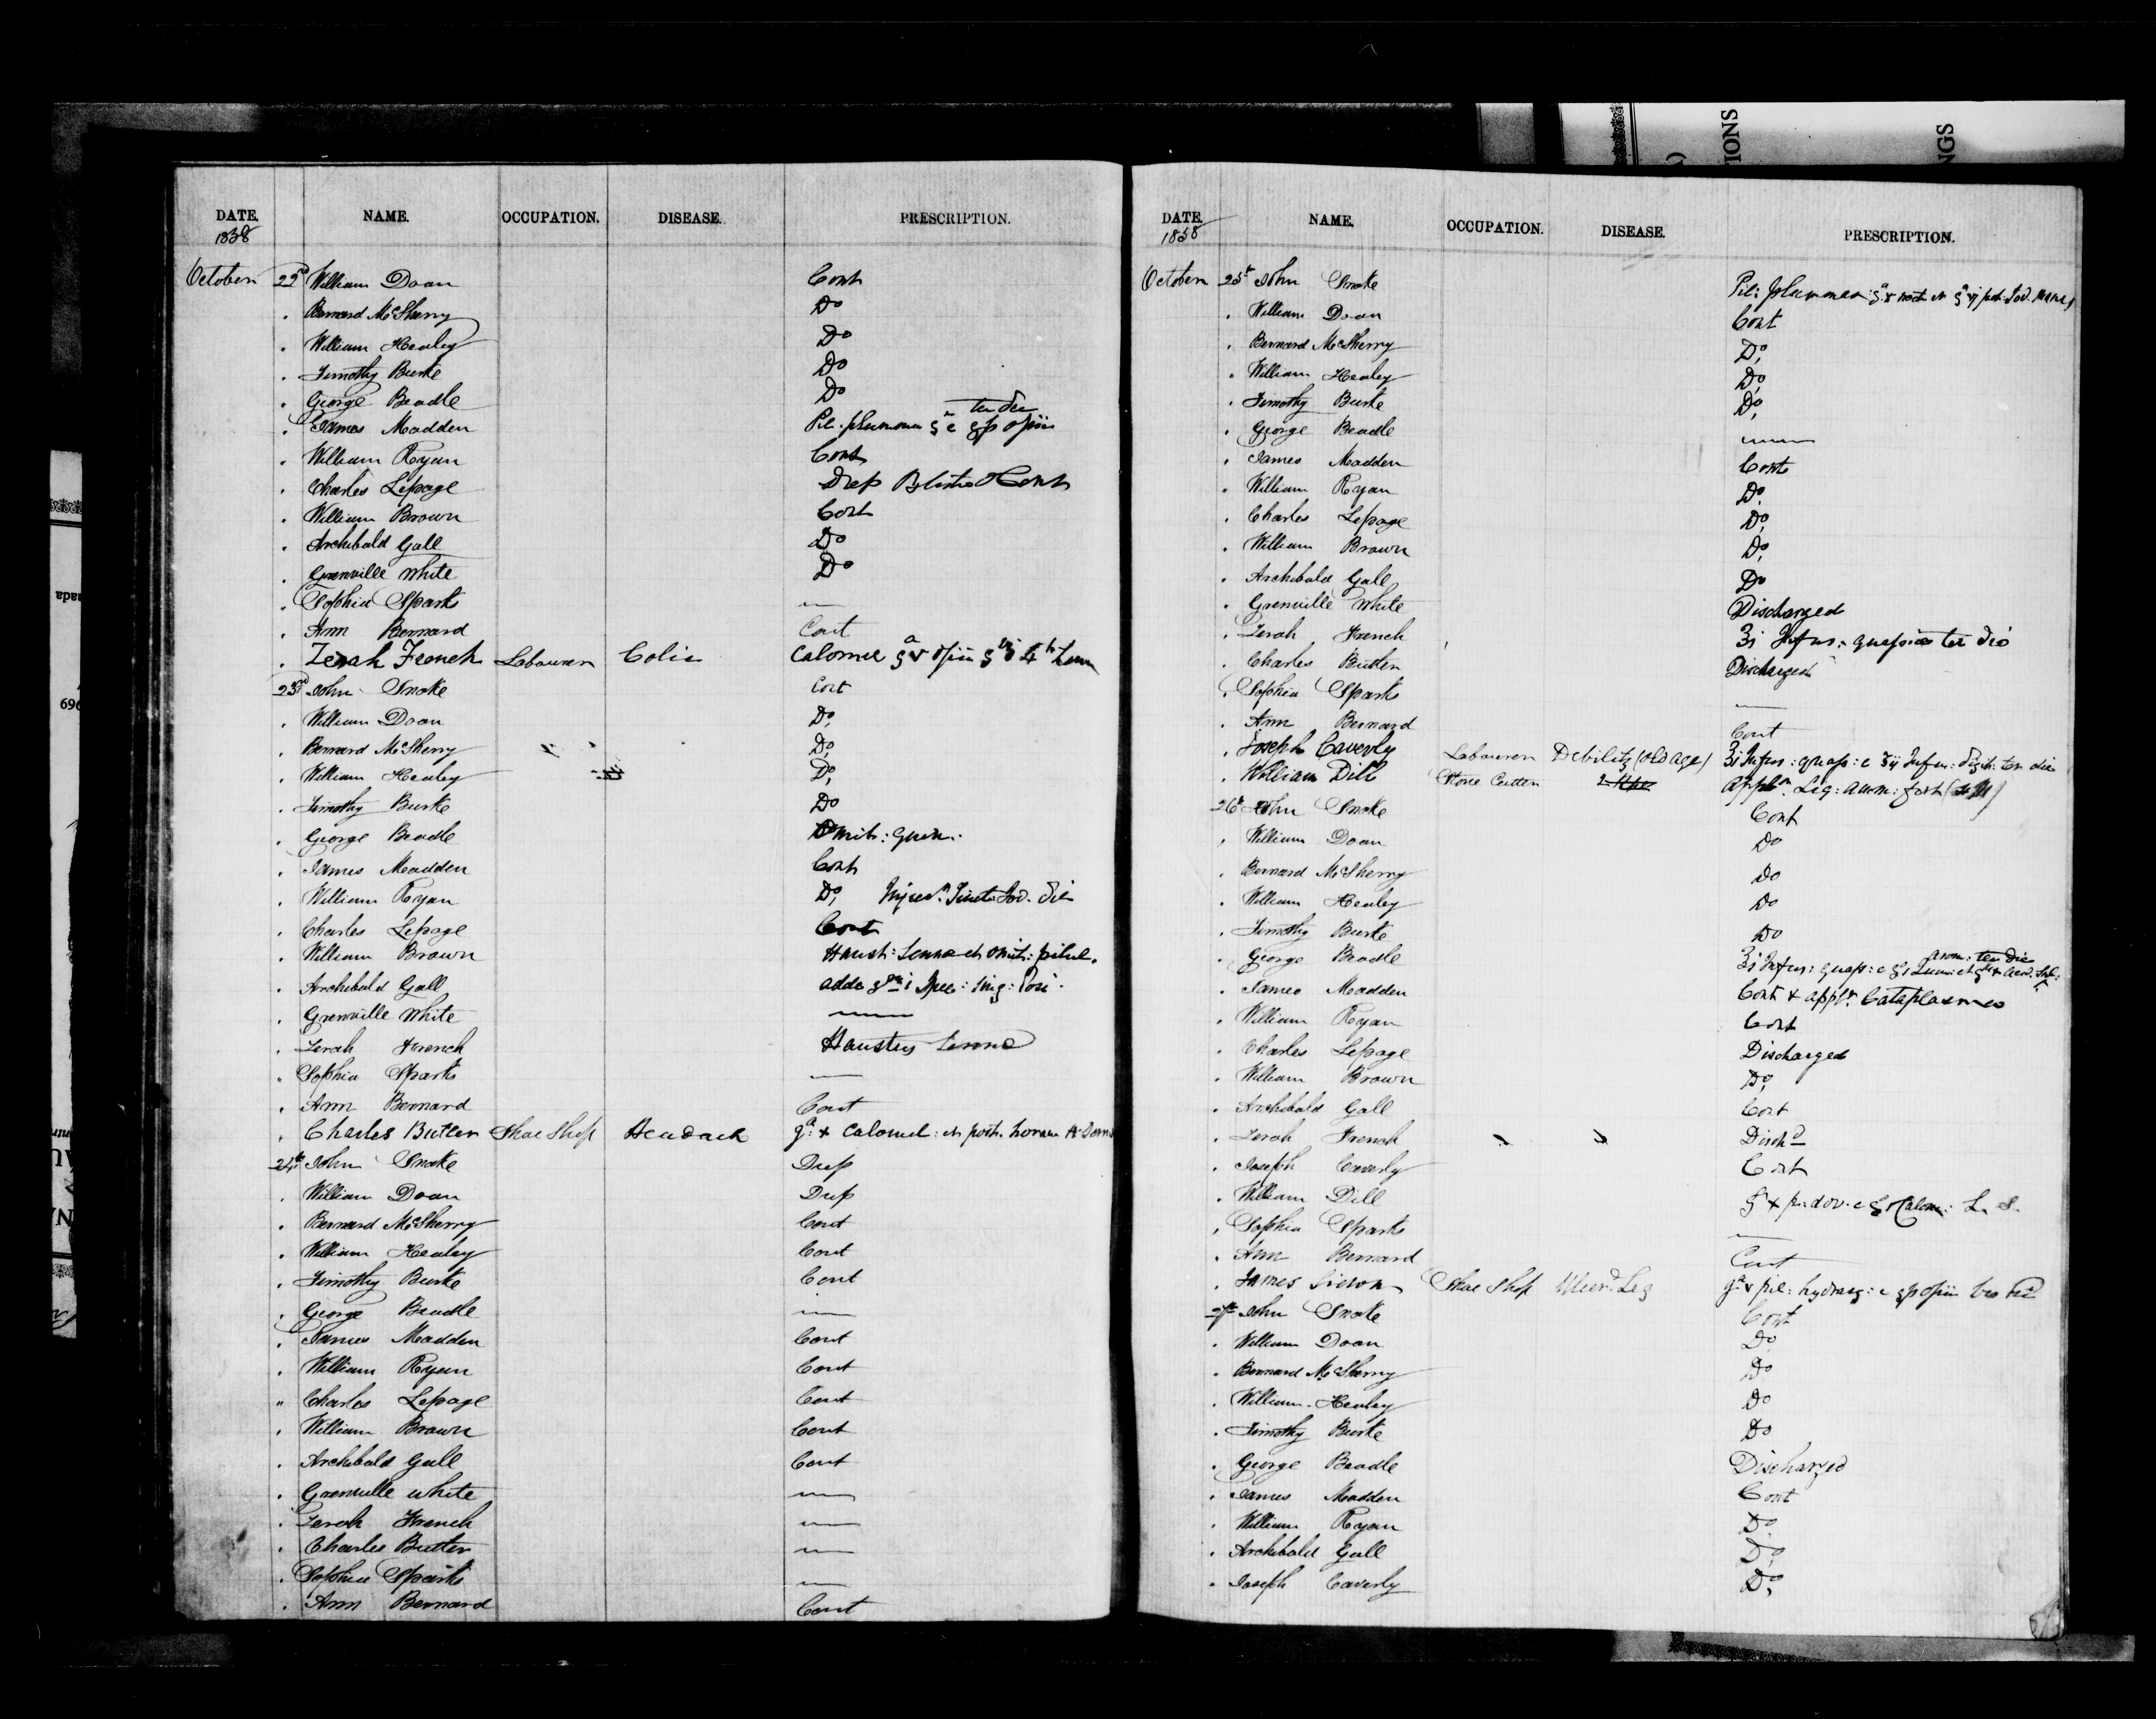 DATE. NAME. OCCUPATION. DISEASE. PRESCRIPTION.
1858
October 22nd William Doan Cont
" Bernard McSherry Do
" William Healey Do
" Timothy Burke Do
" George Beadle Do
" James Madden Pil. plummer opii ter die
" William Ryan Cont
" Charles Lepage Cont
" William Brown Cont
" Archibald Gall Do
" Grenville White Do
" Sophia Sparks —
" Ann Bernard Cont
" Zerah French Labourer Colic Calomel opii
23rd John Snoke Cont
" William Doan Do,
" Bernard McSherry Do,
" William Healey Do,
" Timothy Burke Do
" George Beadle Omit: quin.
" James Madden Cont
" William Ryan Do,
" Charles Lepage Cont
" William Brown Haust: Senna et omit: pilul.
" Archibald Gall adde
" Grenville White —
" Zerah French Haustus Senna
" Sophia Sparks —
" Ann Bernard Cont
" Charles Butler Shoe Shop Headach Calomel: et post. horam
24th John Snoke
" William Doan
" Bernard McSherry Cont
" William Healey Cont
" Timothy Burke Cont
" George Beadle —
" James Madden Cont
" William Ryan Cont
" Charles Lepage Cont
" William Brown Cont
" Archibald Gall Cont
" Grenville White —
" Zerah French —
" Charles Butler —
" Sophia Sparks —
" Ann Bernard Cont
DATE. NAME. OCCUPATION. DISEASE. PRESCRIPTION.
1858
October 25th John Snoke Pil: plummer
" William Doan Cont
" Bernard McSherry Do,
" William Healey Do,
" Timothy Burke Do,
" George Beadle —
" James Madden Cont
" William Ryan Do,
" Charles Lepage Do,
" William Brown Do,
" Archibald Gall Do
" Grenville White Discharged
" Zerah French ʒi Infus: quassia ter die
" Charles Butler Discharged
" Sophia Sparks —
" Ann Bernard Cont
" Joseph Caverly Labourer Debility (old age) ʒi Infus: quass: c ʒij Infus: Digit: ter die
" William Dill Stone Cutter
26th John Snoke Cont
" William Doan Do
" Bernard McSherry Do
" William Healey Do
" Timothy Burke Do
" George Beadle ʒi Infus: quass: ter die
" James Madden Cont + appln Cataplasmes
" William Ryan Cont
" Charles Lepage Discharged
" William Brown Do,
" Archibald Gall Cont
" Zerah French Dischd
" Joseph Caverly Cont
" William Dill
" Sophia Sparks —
" Ann Bernard Cont
" James Shoe Shop Ulcerd Leg pil: hydrarg: opii
27th John Snoke Cont
" William Doan Do
" Bernard McSherry Do
" William Healey Do
" Timothy Burke Do
" George Beadle Discharged
" James Madden Cont
" William Ryan Do
" Archibald Gall Do,
" Joseph Caverly Do,
IONS
NGS
696